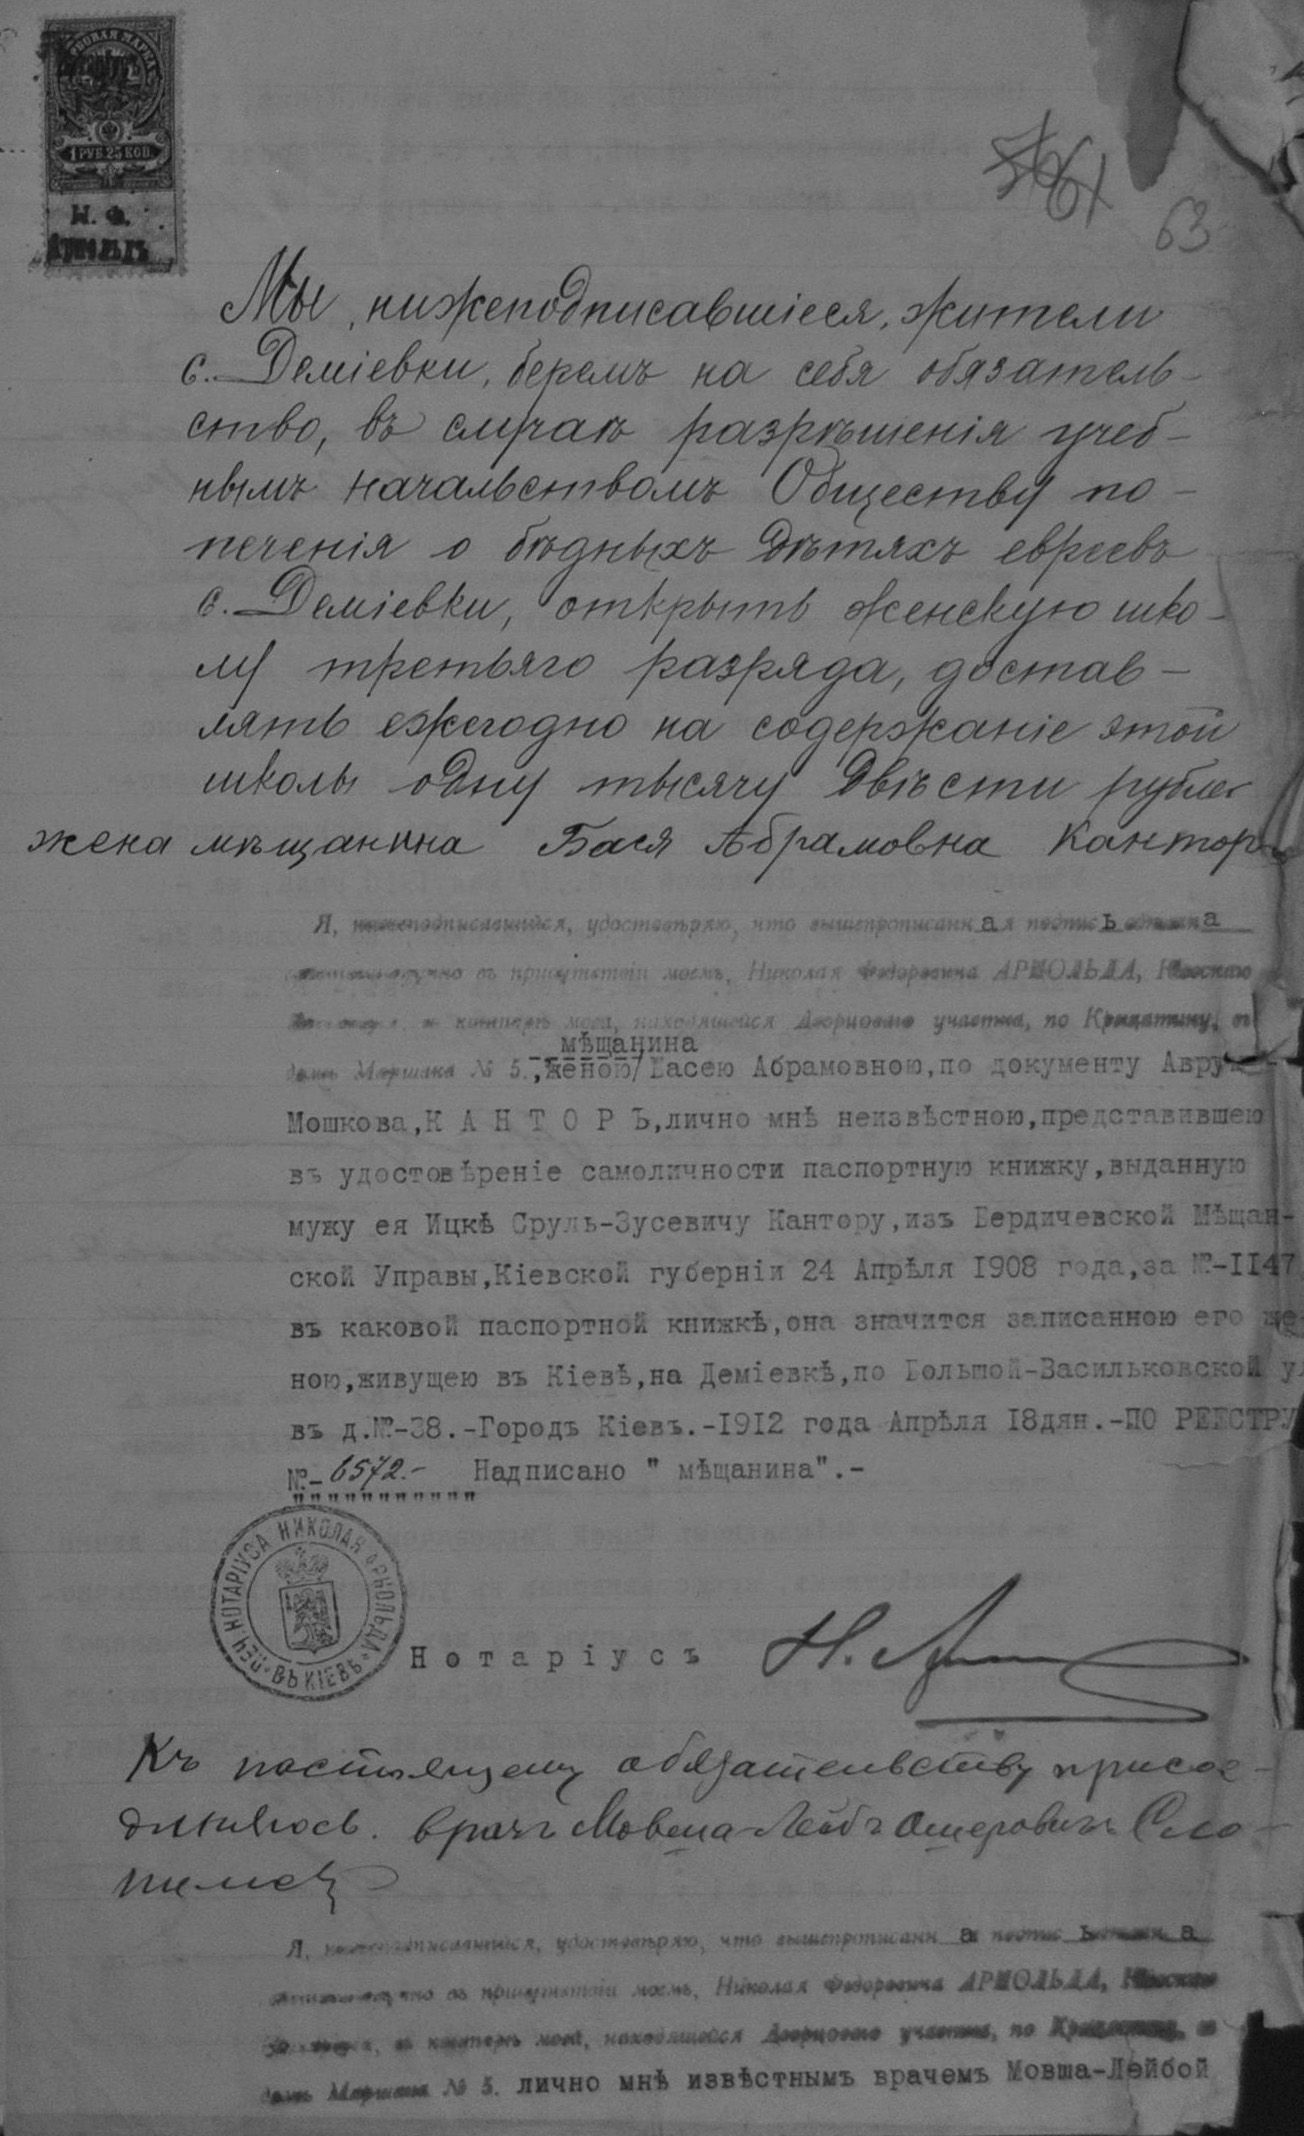 1 РУБ. 25 КОП.
Н. Ф.
Арнольдъ
61
63
Мы, нижеподписавшіеся, жители
с. Деміевки, беремъ на себя обязатель-
ство, въ случаѣ разрѣшенія учеб-
нымъ начальствомъ Обществу по-
печенія о бѣдныхъ дѣтяхъ евреевъ
с. Деміевки, открыть женскую шко-
лу третьяго разряда, достав-
лять ежегодно на содержаніе этой
школы одну тысячу двѣсти рублей
жена мѣщанина Бася Абрамовна Канторъ
Я, нижеподписавшійся, удостовѣряю, что вышепрописанная подпись сдѣлана
собственноручно въ присутствіи моемъ, Николая Федоровича АРНОЛЬДА, Кіевскаго
Нотаріуса, въ конторѣ моей, находящейся Дворцоваго участка, по Крещатику, въ
домѣ Маршака № 5.,женою/Басею Абрамовною,по документу Аврумъ-
мѣщанина
Мошкова,К А Н Т О Р Ъ,лично мнѣ неизвѣстною,представившею
въ удостовѣреніе самоличности паспортную книжку,выданную
мужу ея Ицкѣ Сруль-Зусевичу Кантору,изъ Бердичевской Мѣщан-
ской Управы,Кіевской губерніи 24 Апрѣля 1908 года,за №-1147
въ каковой паспортной книжкѣ,она значится записанною его же-
ною,живущею въ Кіевѣ,на Деміевкѣ,по Большой-Васильковской ул
въ д.№-38.-Городъ Кіевъ.-1912 года Апрѣля 18дян.-ПО РЕЕСТРУ
№-6572.- Надписано " мѣщанина".-
ПЕЧ. НОТАРІУСА НИКОЛАЯ АРНОЛЬДА ВЪ КІЕВѢ
Нотаріусъ Н. Арнольдъ
Къ настоящему обязательству присое-
диняюсь. врачъ Мовша-Лейбъ Ошеровичъ Сло-
нимскій
Я, нижеподписавшійся, удостовѣряю, что вышепрописанная подпись сдѣлана
собственноручно въ присутствіи моемъ, Николая Федоровича АРНОЛЬДА, Кіевскаго
Нотаріуса, въ конторѣ моей, находящейся Дворцоваго участка, по Крещатику, въ
домѣ Маршака № 5. лично мнѣ извѣстнымъ врачемъ Мовша-Лейбой